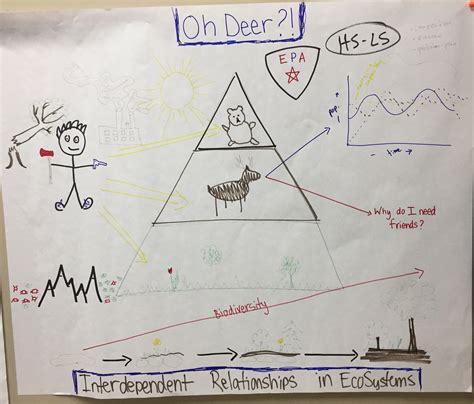 Oh Deer?!
EPA
HS-LS
pop.
- time →
Why do I need
friends?
Biodiversity
Interdependent Relationships in EcoSystems